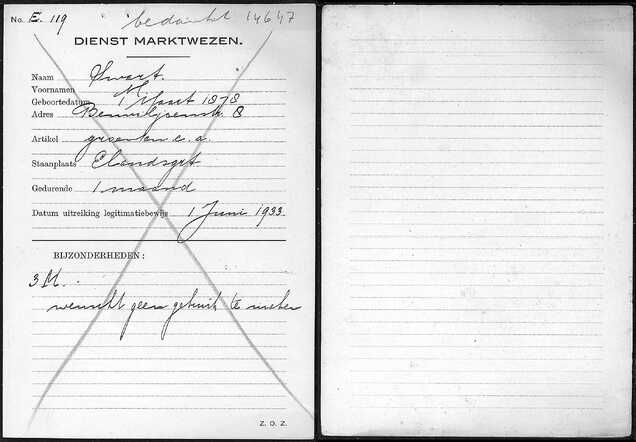 No. E. 119 bedankt 14647
DIENST MARKTWEZEN.
Naam Swart.
Voornamen M.
Geboortedatum 1 Maart 1878
Adres 8
Artikel groenten e.a.
Staanplaats Elandsgrt.
Gedurende 1 maand
Datum uitreiking legitimatiebewijs 1 Juni 1933.
BIJZONDERHEDEN:
3 M.
wenscht geen gebruik te maken
Z. O. Z.